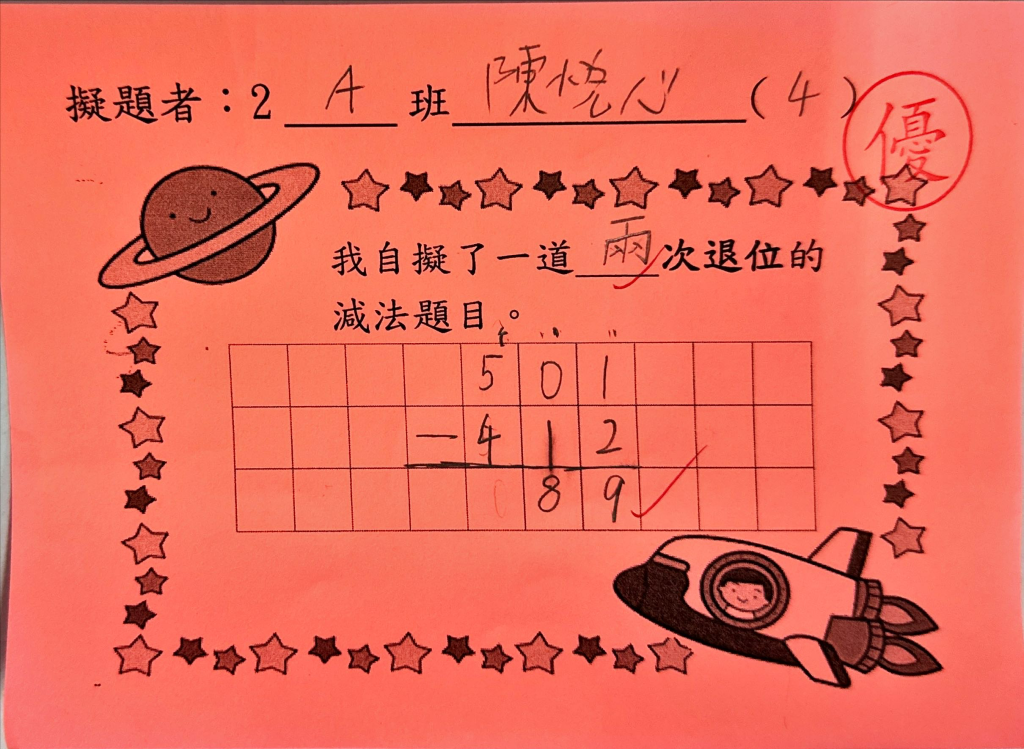 擬題者：2 A 班 陳悅心（4）
優
我自擬了一道 兩 次退位的
減法題目。
5 0 1
－ 4 1 2
8 9